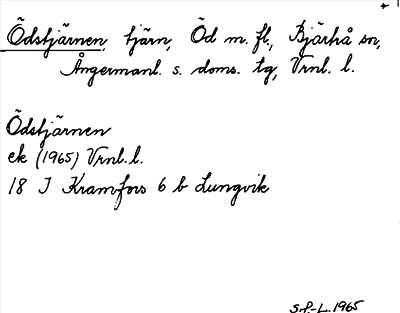 +
Ödstjärnen, tjärn, Öd m. fl., Bjärtrå sn,
Ångermanl. s. doms. tg, Vrnl. l.
Ödstjärnen
ek (1965) Vrnl. l.
18 I Kramfors 6 b Lungvik
S.P.-L. 1965